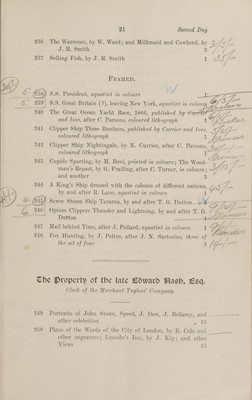 21 Second Day
236 The Warrener, by W. Ward; and Milkmaid and Cowherd, by
J. R. Smith 3
237 Selling Fish, by J. R. Smith 1
FRAMED.
238 S.S. President, aquatint in colours 1
239 S.S. Great Britain (?), leaving New York, aquatint in colours
240 The Great Ocean Yacht Race, 1866, published by Currier
and Ives, after C. Parsons, coloured lithograph 1
241 Clipper Ship Three Brothers, published by Currier and Ives,
coloured lithograph 1
242 Clipper Ship Nightingale, by N. Currier, after C. Parsons,
coloured lithograph 1
243 Cupids Sporting, by M. Bovi, printed in colours; The Wood-
man's Repast, by G. Frailing, after C. Turner, in colours;
and another 3
244 A King's Ship dressed with the colours of different nations,
by and after R. Lane, aquatint in colours 1
245 Screw Steam Ship Tararua, by and after T. G. Dutton
246 Opium Clippers Thunder and Lightning, by and after T. G.
Dutton 1
247 Mail behind Time, after J. Pollard, aquatint in colours 1
248 Fox Hunting, by J. Peltro, after J. N. Sartorius, three of
the set of four 3
The Property of the late Edward Nash, Esq.
Clerk of the Merchant Taylors' Company.
249 Portraits of John Stowe, Speed, J. Dew, J. Bellamy, and
other celebrities 15
250 Plans of the Wards of the City of London, by B. Cole and
other engravers; Lincoln's Inn, by J. Kip; and other
Views 15